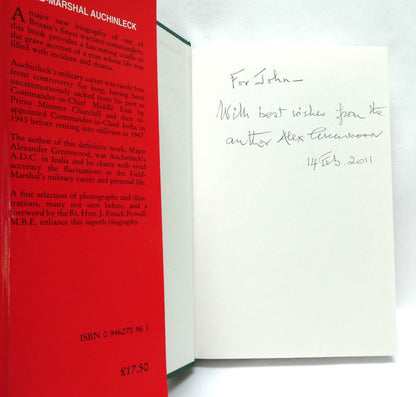 D-MARSHAL AUCHINLECK
A major new biography of one of
Britain's finest wartime commanders,
this book provides a fascinating cradle to
the grave account of a man whose life was
filled with incident and drama.
Auchinleck's military career was rarely free
from controversy for long, having been
unceremoniously sacked from his post as
Commander-in-Chief Middle East by
Prime Minister Churchill and then re-
appointed Commander-in-Chief India in
1943 before retiring into oblivion in 1947.
The author of this definitive work, Major
Alexander Greenwood, was Auchinleck's
A.D.C. in India and he charts with vivid
accuracy the fluctuations in the Field-
Marshal's military career and personal life.
A fine selection of photographs and illus-
trations, many not seen before, and a
foreword by the Rt. Hon. J. Enoch Powell,
M.B.E. enhance this superb biography.
ISBN 0 946270 96 1
£17.50
For John—
With best wishes from the
author Alex Greenwood
14 Feb. 2011